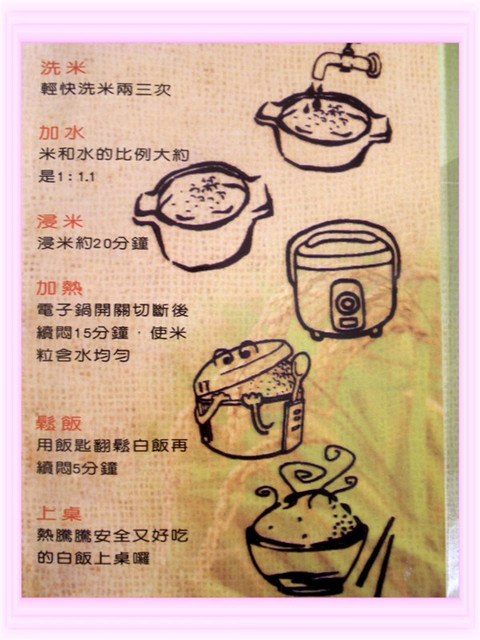 洗米
輕快洗米兩三次
加水
米和水的比例大約
是1：1.1
浸米
浸米約20分鐘
加熱
電子鍋開關切斷後
續悶15分鐘，使米
粒含水均勻
鬆飯
用飯匙翻鬆白飯再
續悶5分鐘
上桌
熱騰騰安全又好吃
的白飯上桌囉